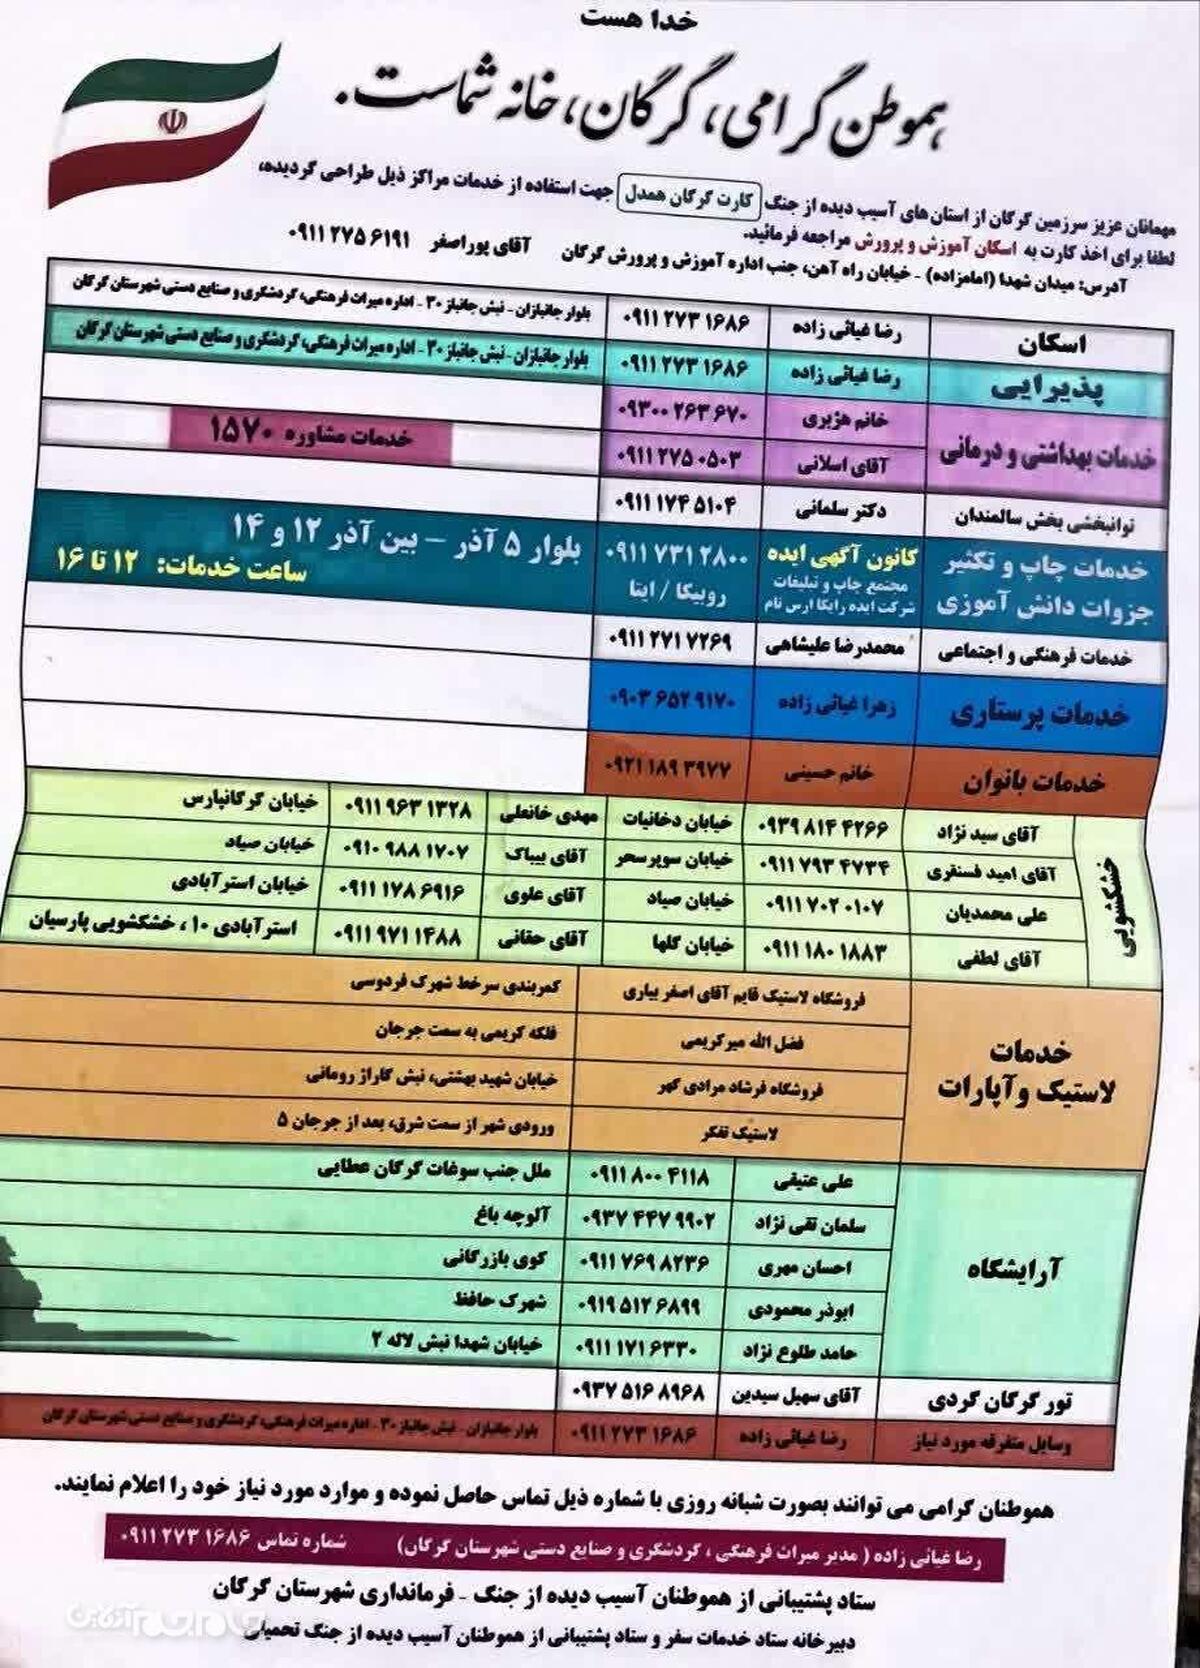 خدا هست
هموطن گرامی، گرگان، خانه شماست.
مهمانان عزیز سرزمین گرگان از استان‌های آسیب دیده از جنگ کارت گرگان همدل جهت استفاده از خدمات مراکز ذیل طراحی گردیده،
لطفا برای اخذ کارت به اسکان آموزش و پرورش مراجعه فرمائید.
آدرس: میدان شهدا (امامزاده) - خیابان راه آهن، جنب اداره آموزش و پرورش گرگان آقای پوراصغر ۰۹۱۱ ۲۷۵ ۶۱۹۱
اسکان رضا غیاثی زاده ۰۹۱۱ ۲۷۳ ۱۶۸۶ بلوار جانبازان - نبش جانباز ۳۰ - اداره میراث فرهنگی، گردشگری و صنایع دستی شهرستان گرگان
پذیرایی رضا غیاثی زاده ۰۹۱۱ ۲۷۳ ۱۶۸۶ بلوار جانبازان - نبش جانباز ۳۰ - اداره میراث فرهنگی، گردشگری و صنایع دستی شهرستان گرگان
خدمات بهداشتی و درمانی خانم هژبری ۰۹۳۰۰ ۲۶۳ ۶۷۰
آقای اسلانی ۰۹۱۱ ۲۷۵ ۰۵۰۳ خدمات مشاوره ۱۵۷۰
توانبخشی بخش سالمندان دکتر سلمانی ۰۹۱۱ ۱۷۴ ۵۱۰۴
خدمات چاپ و تکثیر کانون آگهی ایده ۰۹۱۱ ۷۳۱ ۲۸۰۰ بلوار ۵ آذر - بین آذر ۱۲ و ۱۴
جزوات دانش آموزی مجتمع چاپ و تبلیغات روبیکا / ایتا ساعت خدمات: ۱۲ تا ۱۶
شرکت ایده رایکا ارس نام
خدمات فرهنگی و اجتماعی محمدرضا علیشاهی ۰۹۱۱ ۲۷۱ ۷۲۶۹
خدمات پرستاری زهرا غیاثی زاده ۰۹۰۳ ۶۵۲ ۹۱۷۰
خدمات بانوان خانم حسینی ۰۹۲۱ ۱۸۹ ۳۹۷۷
خشکشویی
آقای سید نژاد ۰۹۳۹ ۸۱۴ ۴۲۶۶ خیابان دخانیات مهدی خانعلی ۰۹۱۱ ۹۶۳ ۱۳۲۸ خیابان گرگانپارس
آقای امید فسنقری ۰۹۱۱ ۷۹۳ ۴۷۳۴ خیابان سوپرسحر آقای بیباک ۰۹۱۰ ۹۸۸ ۱۷۰۷ خیابان صیاد
علی محمدیان ۰۹۱۱ ۷۰۲ ۰۱۰۷ خیابان صیاد آقای علوی ۰۹۱۱ ۱۷۸ ۶۹۱۶ خیابان استرآبادی
آقای لطفی ۰۹۱۱ ۱۸۰ ۱۸۸۳ خیابان گلها آقای حقانی ۰۹۱۱ ۹۷۱ ۱۴۸۸ استرآبادی ۱۰ ، خشکشویی پارسیان
خدمات لاستیک و آپارات
فروشگاه لاستیک قایم آقای اصغر بیاری کمربندی سرخط شهرک فردوسی
فضل الله میرکریمی فلکه کریمی به سمت جرجان
فروشگاه فرشاد مرادی گهر خیابان شهید بهشتی، نبش گاراژ رومانی
لاستیک تفکر ورودی شهر از سمت شرق، بعد از جرجان ۵
آرایشگاه
علی عتیقی ۰۹۱۱ ۸۰۰ ۴۱۱۸ ملل جنب سوغات گرگان عطایی
سلمان تقی نژاد ۰۹۳۷ ۴۴۷ ۹۹۰۲ آلوچه باغ
احسان مهری ۰۹۱۱ ۷۶۹ ۸۲۳۶ کوی بازرگانی
ابوذر محمودی ۰۹۱۹ ۵۱۲ ۶۸۹۹ شهرک حافظ
حامد طلوع نژاد ۰۹۱۱ ۱۷۱ ۶۳۳۰ خیابان شهدا نبش لاله ۲
تور گرگان گردی آقای سهیل سیدین ۰۹۳۷ ۵۱۶ ۸۹۶۸
وسایل متفرقه مورد نیاز رضا غیاثی زاده ۰۹۱۱ ۲۷۳ ۱۶۸۶ بلوار جانبازان - نبش جانباز ۳۰ - اداره میراث فرهنگی، گردشگری و صنایع دستی شهرستان گرگان
هموطنان گرامی می توانند بصورت شبانه روزی با شماره ذیل تماس حاصل نموده و موارد مورد نیاز خود را اعلام نمایند.
رضا غیاثی زاده ( مدیر میراث فرهنگی ، گردشگری و صنایع دستی شهرستان گرگان) شماره تماس ۰۹۱۱ ۲۷۳ ۱۶۸۶
ستاد پشتیبانی از هموطنان آسیب دیده از جنگ - فرمانداری شهرستان گرگان
دبیرخانه ستاد خدمات سفر و ستاد پشتیبانی از هموطنان آسیب دیده از جنگ تحمیلی